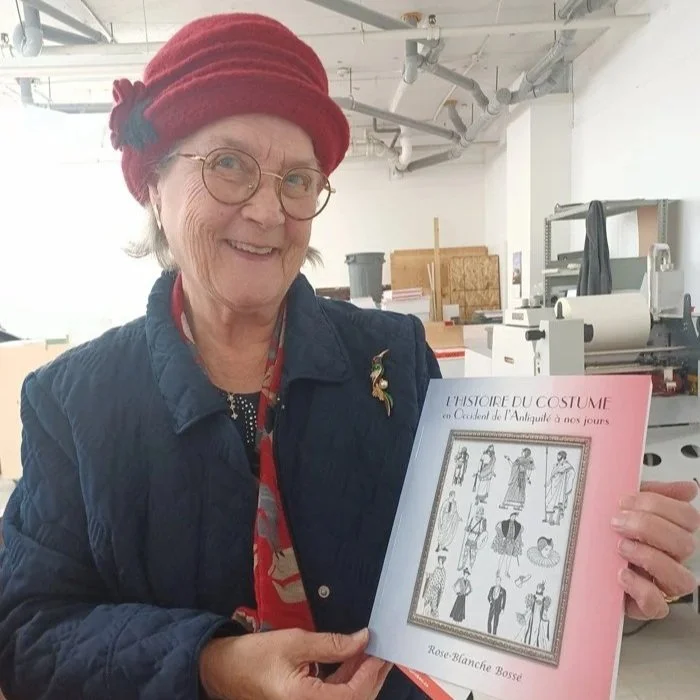 L'HISTOIRE DU COSTUME
en Occident de l'Antiquité à nos jours
Rose-Blanche Bossé